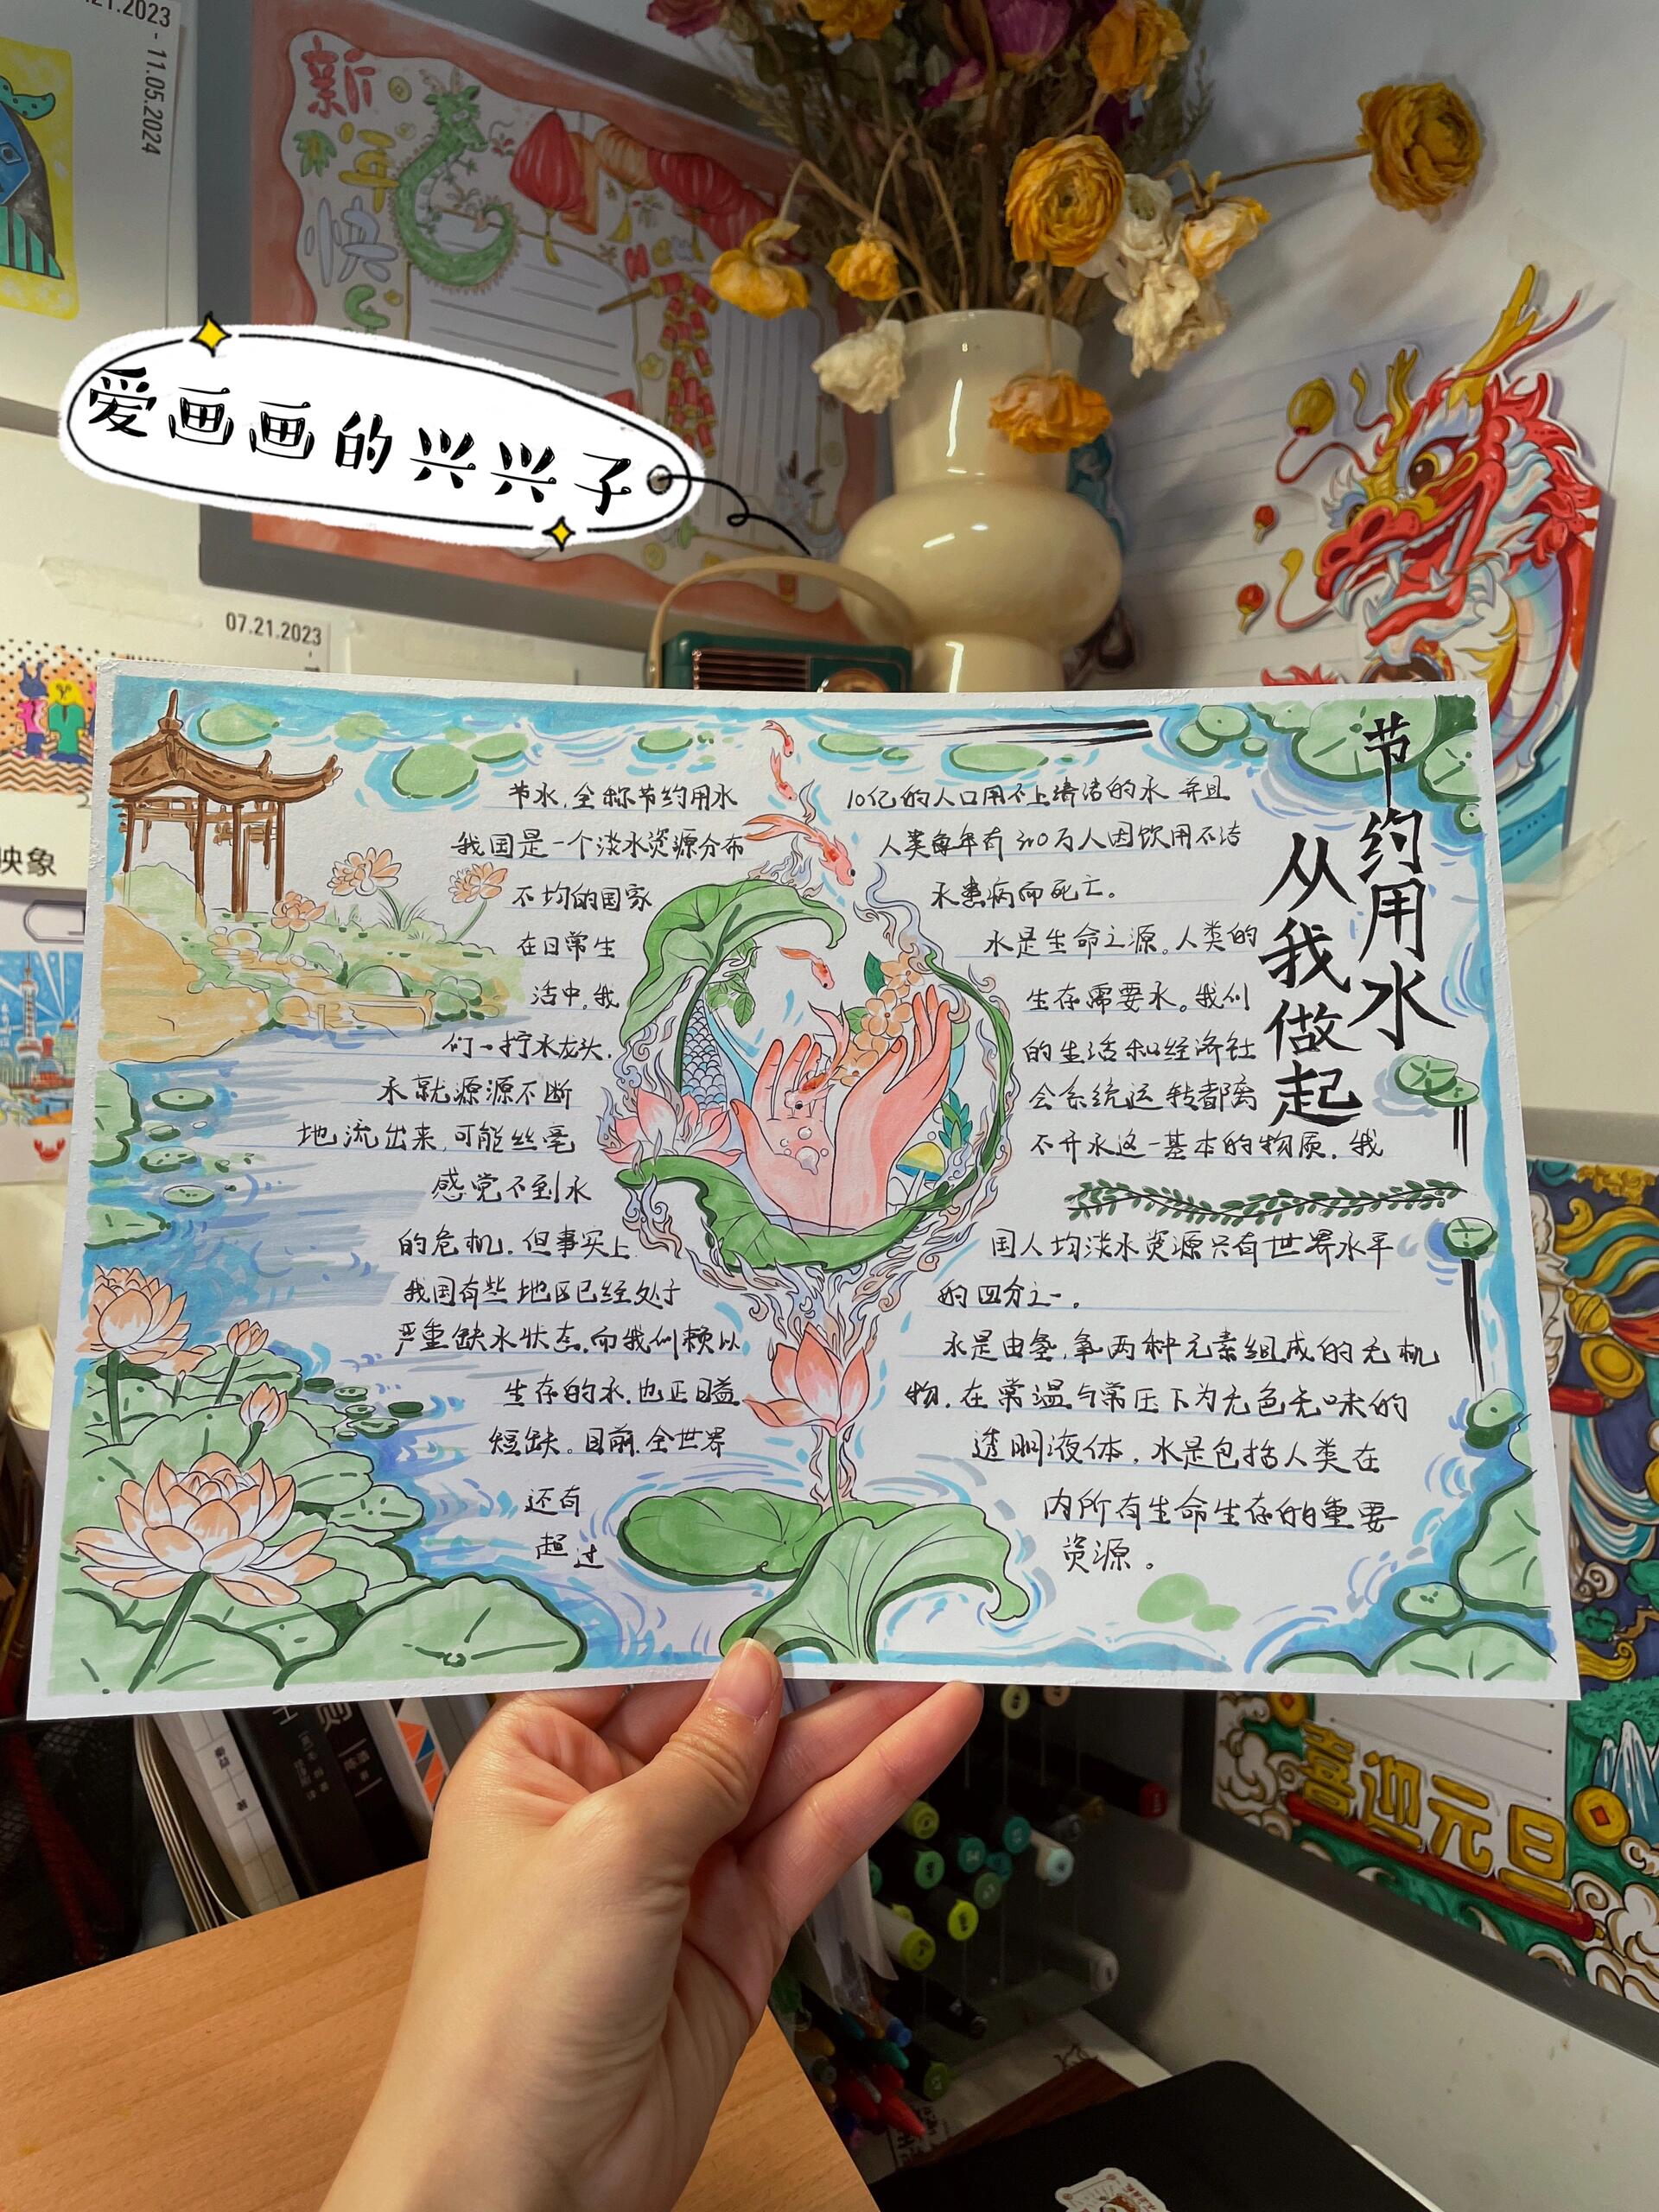 11.21.2023 - 11.05.2024
新年快乐
爱画画的兴兴子
07.21.2023
映象
节约用水
从我做起
节水,全称节约用水
我国是一个淡水资源分布
不均的国家
在日常生
活中,我
们一拧水龙头,
水就源源不断
地流出来,可能丝毫
感觉不到水
的危机,但事实上
我国有些地区已经处于
严重缺水状态,而我们赖以
生存的水,也正日益
短缺。目前,全世界
还有
超过
10亿的人口用不上清洁的水 并且
人类每年有310万人因饮用不洁
水患病而死亡。
水是生命之源。人类的
生存需要水。我们
的生活和经济社
会系统运转都离
不开水这一基本的物质,我
国人均淡水资源只有世界水平
的四分之一。
水是由氢,氧两种元素组成的无机
物,在常温与常压下为无色无味的
透明液体,水是包括人类在
内所有生命生存的重要
资源。
喜迎元旦